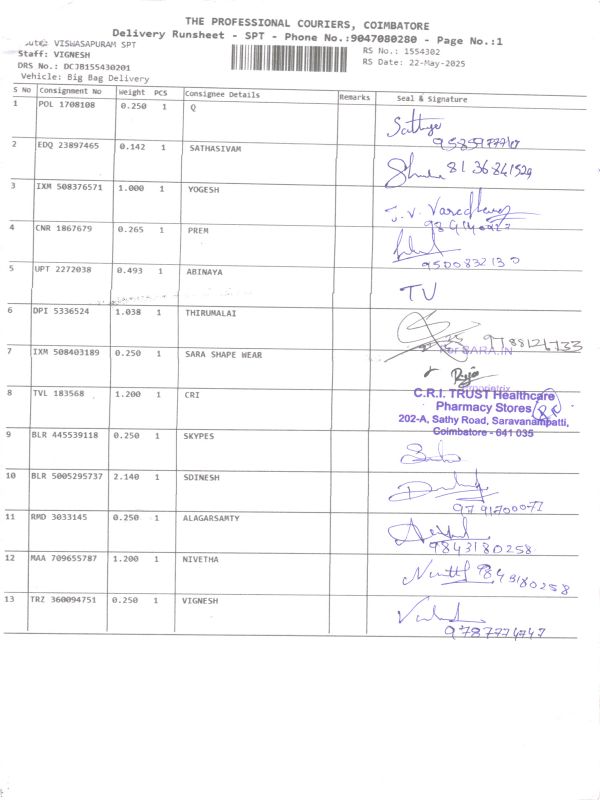 THE PROFESSIONAL COURIERS, COIMBATORE
Delivery Runsheet - SPT - Phone No.:9047080280 - Page No.:1
VISWASAPURAM SPT
Staff: VIGNESH
DRS No.: DCJB155430201
Vehicle: Big Bag Delivery
RS No.: 1554302
RS Date: 22-May-2025
S No Consignment No Weight PCS Consignee Details Remarks Seal & Signature
1 POL 1708108 0.250 1 Q
2 EDQ 23897465 0.142 1 SATHASIVAM
8136841529
3 IXM 508376571 1.000 1 YOGESH
4 CNR 1867679 0.265 1 PREM
9500832130
5 UPT 2272038 0.493 1 ABINAYA
TV
6 DPI 5336524 1.038 1 THIRUMALAI
9788121733
7 IXM 508403189 0.250 1 SARA SHAPE WEAR
For SARA.IN
8 TVL 183568 1.200 1 CRI
C.R.I. TRUST Healthcare
Pharmacy Stores
202-A, Sathy Road, Saravanampatti,
Coimbatore - 641 035
9 BLR 445539118 0.250 1 SKYPES
10 BLR 5005295737 2.140 1 SDINESH
9791700071
11 RMD 3033145 0.250 1 ALAGARSAMTY
9843180258
12 MAA 709655787 1.200 1 NIVETHA
9843180258
13 TRZ 360094751 0.250 1 VIGNESH
9787774747